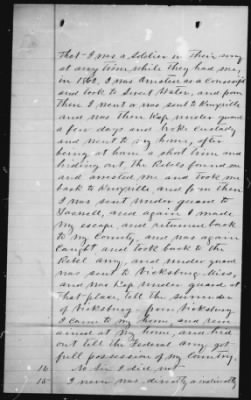 that I was a Soldier in their army
at any time, while they had me,
in 1862, I was Arrested as a Conscript
and took to Sweet Water, and from
then I went or was sent to Knoxville
and was then Kep under guard
a few days and broke custody
and went to my home, after
being at home a short time and
hiding out, the Rebels found me
and arrested me and took me
back to Knoxville and from then
I was sent under guard to
and again I made
my escape and returned back
to my County, and was again
Caught and took back to the
Rebel army, and under guard
was sent to Vicksburg Miss,
and was Kep under guard at
that place, till the surrender
of Vicksburg - from Vicksburg
I came to my home and
at my home, and hid
out till the Federal army got
full possession of my Country.
14 No Sir I did not
15 I never was, directly or indirectly